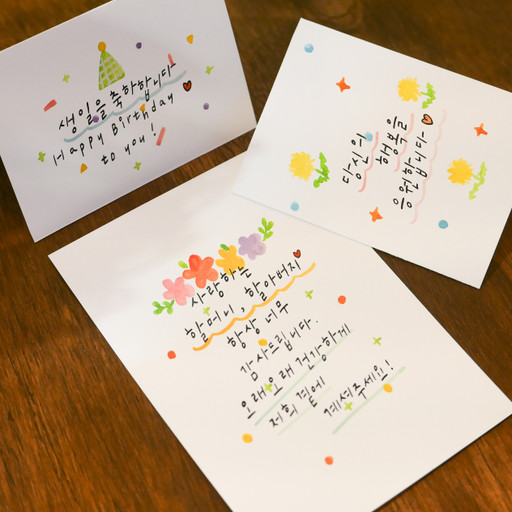 생일을 축하합니다
Happy Birthday
to you!
당신의
행복을
응원합니다
사랑하는
할머니, 할아버지
항상 너무
감사드립니다.
오래오래 건강하게
저희 곁에
계셔주세요!